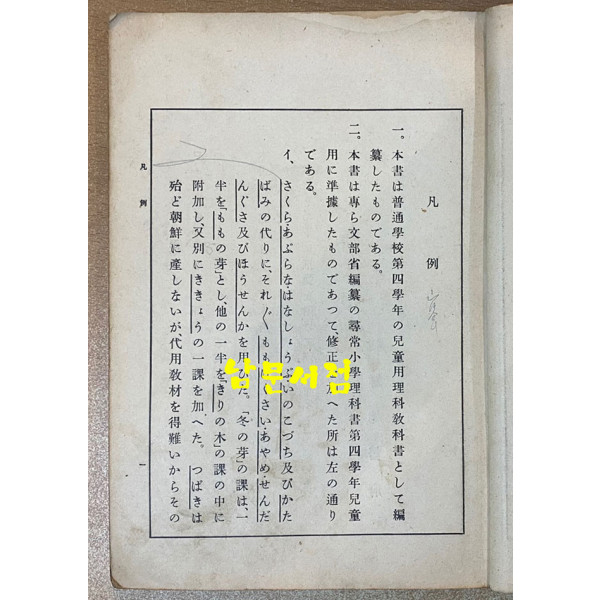 凡例
一。本書は普通學校第四學年の兒童用理科敎科書として編
纂したものである。
二。本書は專ら文部省編纂の尋常小學理科書第四學年兒童
用に準據したものであつて修正 加へた所は左の通り
である。
イ、さくら、あぶらな、はなしょうぶ、いのこづち及びかた
ばみの代りに、それ〲ももはくさい、あやめ、せんだ
んぐさ及びほうせんかを用ひた。「冬の芽」の課は、一
半を「ももの芽」とし、他の一半を「きりの木」の課の中に
附加し、又別にききょうの一課を加へた。つばきは
殆ど朝鮮に産しないが代用敎材を得難いからその
凡例
一
남문서점